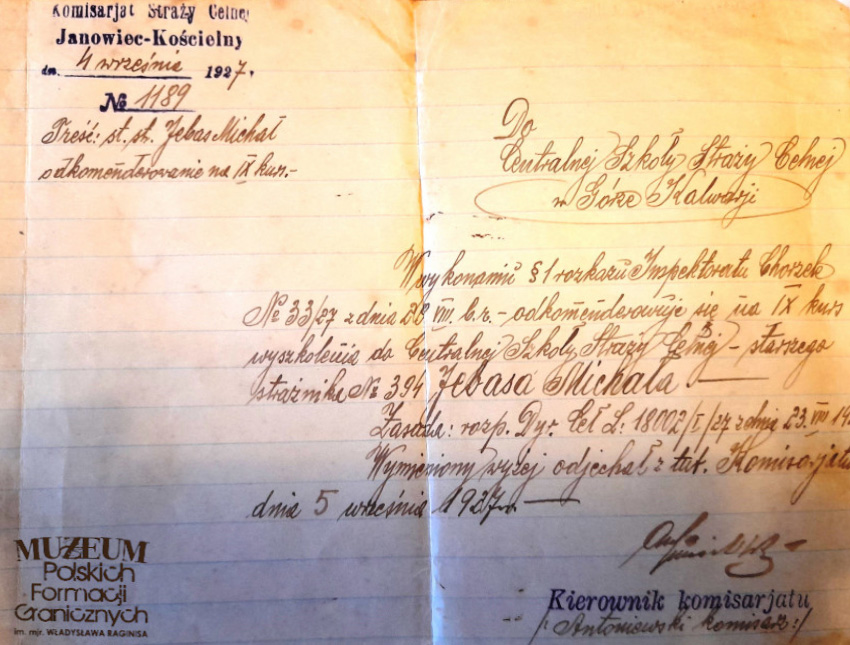 Komisarjat Straży Celnej
Janowiec-Kościelny
dn. 4 września 1927.
№ 1189
Treść: st. st. Jebas Michał
odkomenderowanie na IX kurs.-
Do
Centralnej Szkoły Straży Celnej
w Górze Kalwarji
W wykonaniu § 1 rozkazu Inspektoratu Chorzele
№ 33/27 z dnia 28 VIII. b.r. - odkomenderowuje się na IX kurs
wyszkolenia do Centralnej Szkoły Straży Celnej - starszego
strażnika № 394 Jebasa Michała —
Zasada: rozp. Dyr. Ceł L: 18002/I/27 z dnia 23. VIII 19
Wymieniony wyżej odjechał z tut. Komisarjatu
dnia 5 września 1927r. —
Kierownik komisarjatu
/: Antoniewski komisarz :/
MUZEUM
Polskich
Formacji
Granicznych
im. mjr. WŁADYSŁAWA RAGINISA